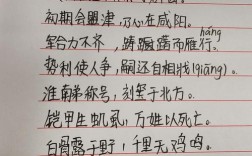 初期会盟津,乃心在咸阳。
háng
军合力不齐,踌躇而雁行。
势利使人争,嗣还自相戕(qiāng)。
淮南弟称号,刻玺于北方。
铠甲生虮虱,万姓以死亡。
白骨露于野,千里无鸡鸣。